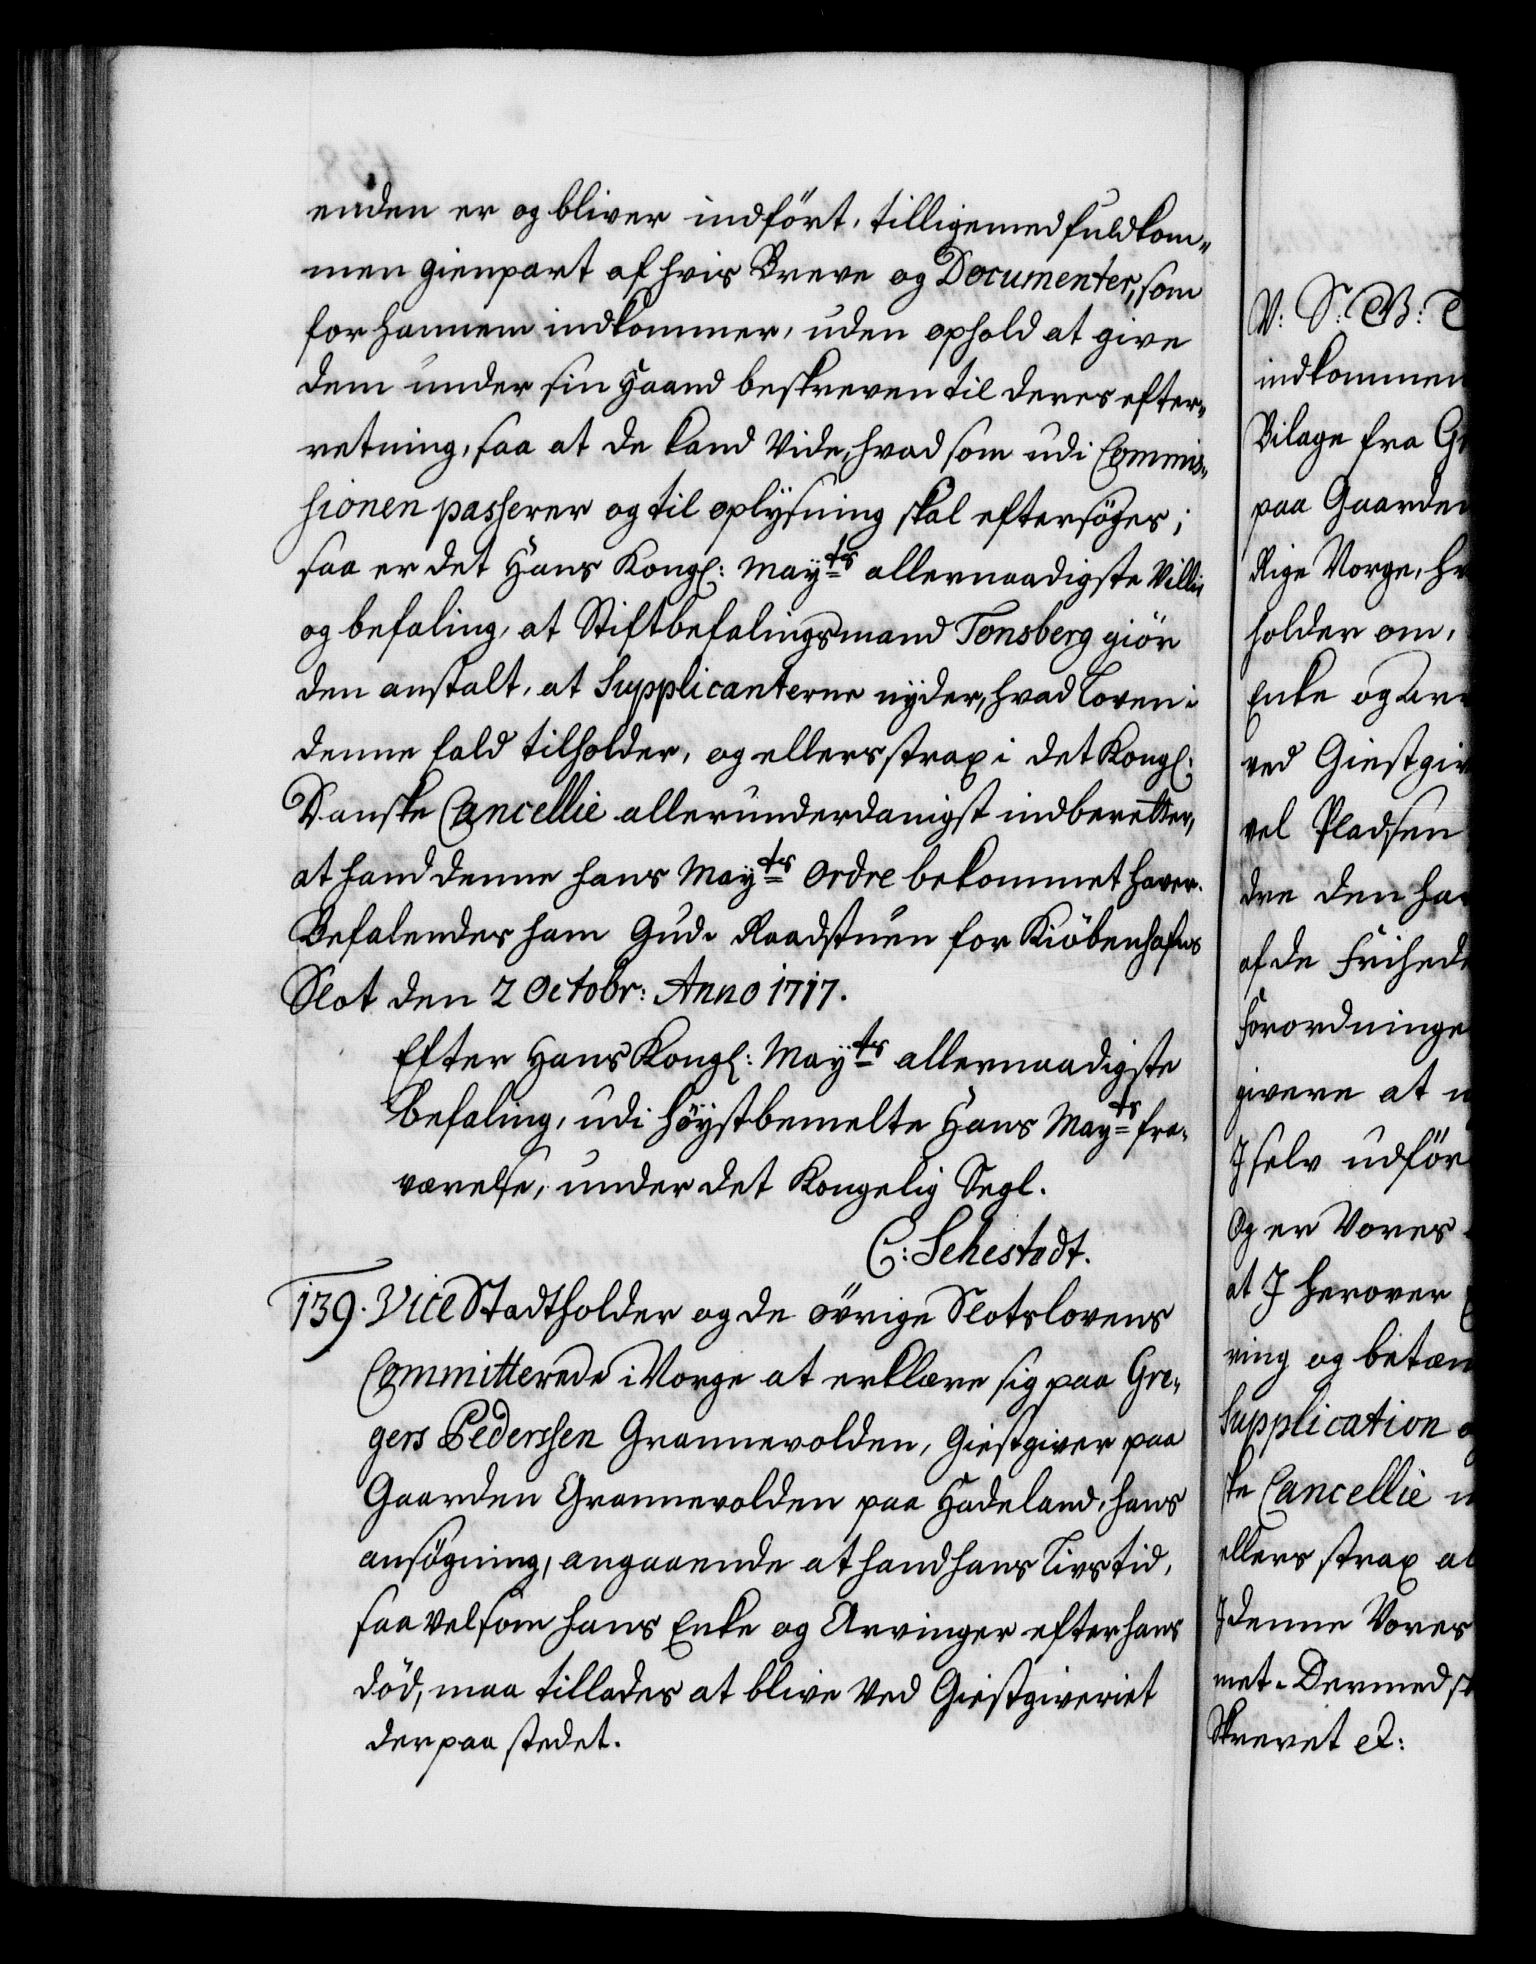 enden er og bliver indført, tilligemed fuldkom„
men gienpart af hvis Breve og Documenter, som
for hannem indkommer, uden ophold at give
dem under sin Haand beskreven til deres efter„
retning, saa at de kand vide, hvad som udi Commis„
sionen passerer og til oplysning skal eftersøges;
saa er det Hans Kongl: Mayts allernaadigste Villie
og befaling, at Stiftbefalingsmand Tonsberg giør
den anstalt, at Supplicanterne nyder, hvad Loven i
denne fald tilholder, og ellers strax i det Kongl:
Danske Cancellie allerunderdanigst indberetter,
at hand denne hans Mayts Ordre bekommet haver.
Befalendes ham Gud. Raadstuen for Kiöbenhafns
Slot den 2 Octobr: Anno 1717.
Efter Hans Kongl: Mayts allernaadigste
Befaling, udi höystbemelte Hans Mayts fra„
værelse, under det Kongelig Segl.
C: Sehestedt.
139. Vice Stadtholder og de övrige Slotslovens
Committerede i Norge at erklære sig paa Gre„
gers Pederssen Grannevolden, Giestgiver paa
Gaarden Grannevolden paa Hadeland, hans
ansögning, angaaende at hand hans Livs tid,
saavelsom hans Enke og Arvinger efter hans
död, maa tillades at blive ved Giestgiveriet
der paa stedet.
V: S: G: T
indkommen
Bilage fra G
paa Gaarden
Rige Norge, h
holder om,
Enke og Arv
ved Giestgiv
vel Pladsen
dre den ha
af de Friheder
Forordninge
givere at n
I selv udför
Og er Vores
at I herover
ring og betæn
Supplication o
ske Cancellie
ellers strax al
I denne Vores
met. Dermed s
Skrevet &c: